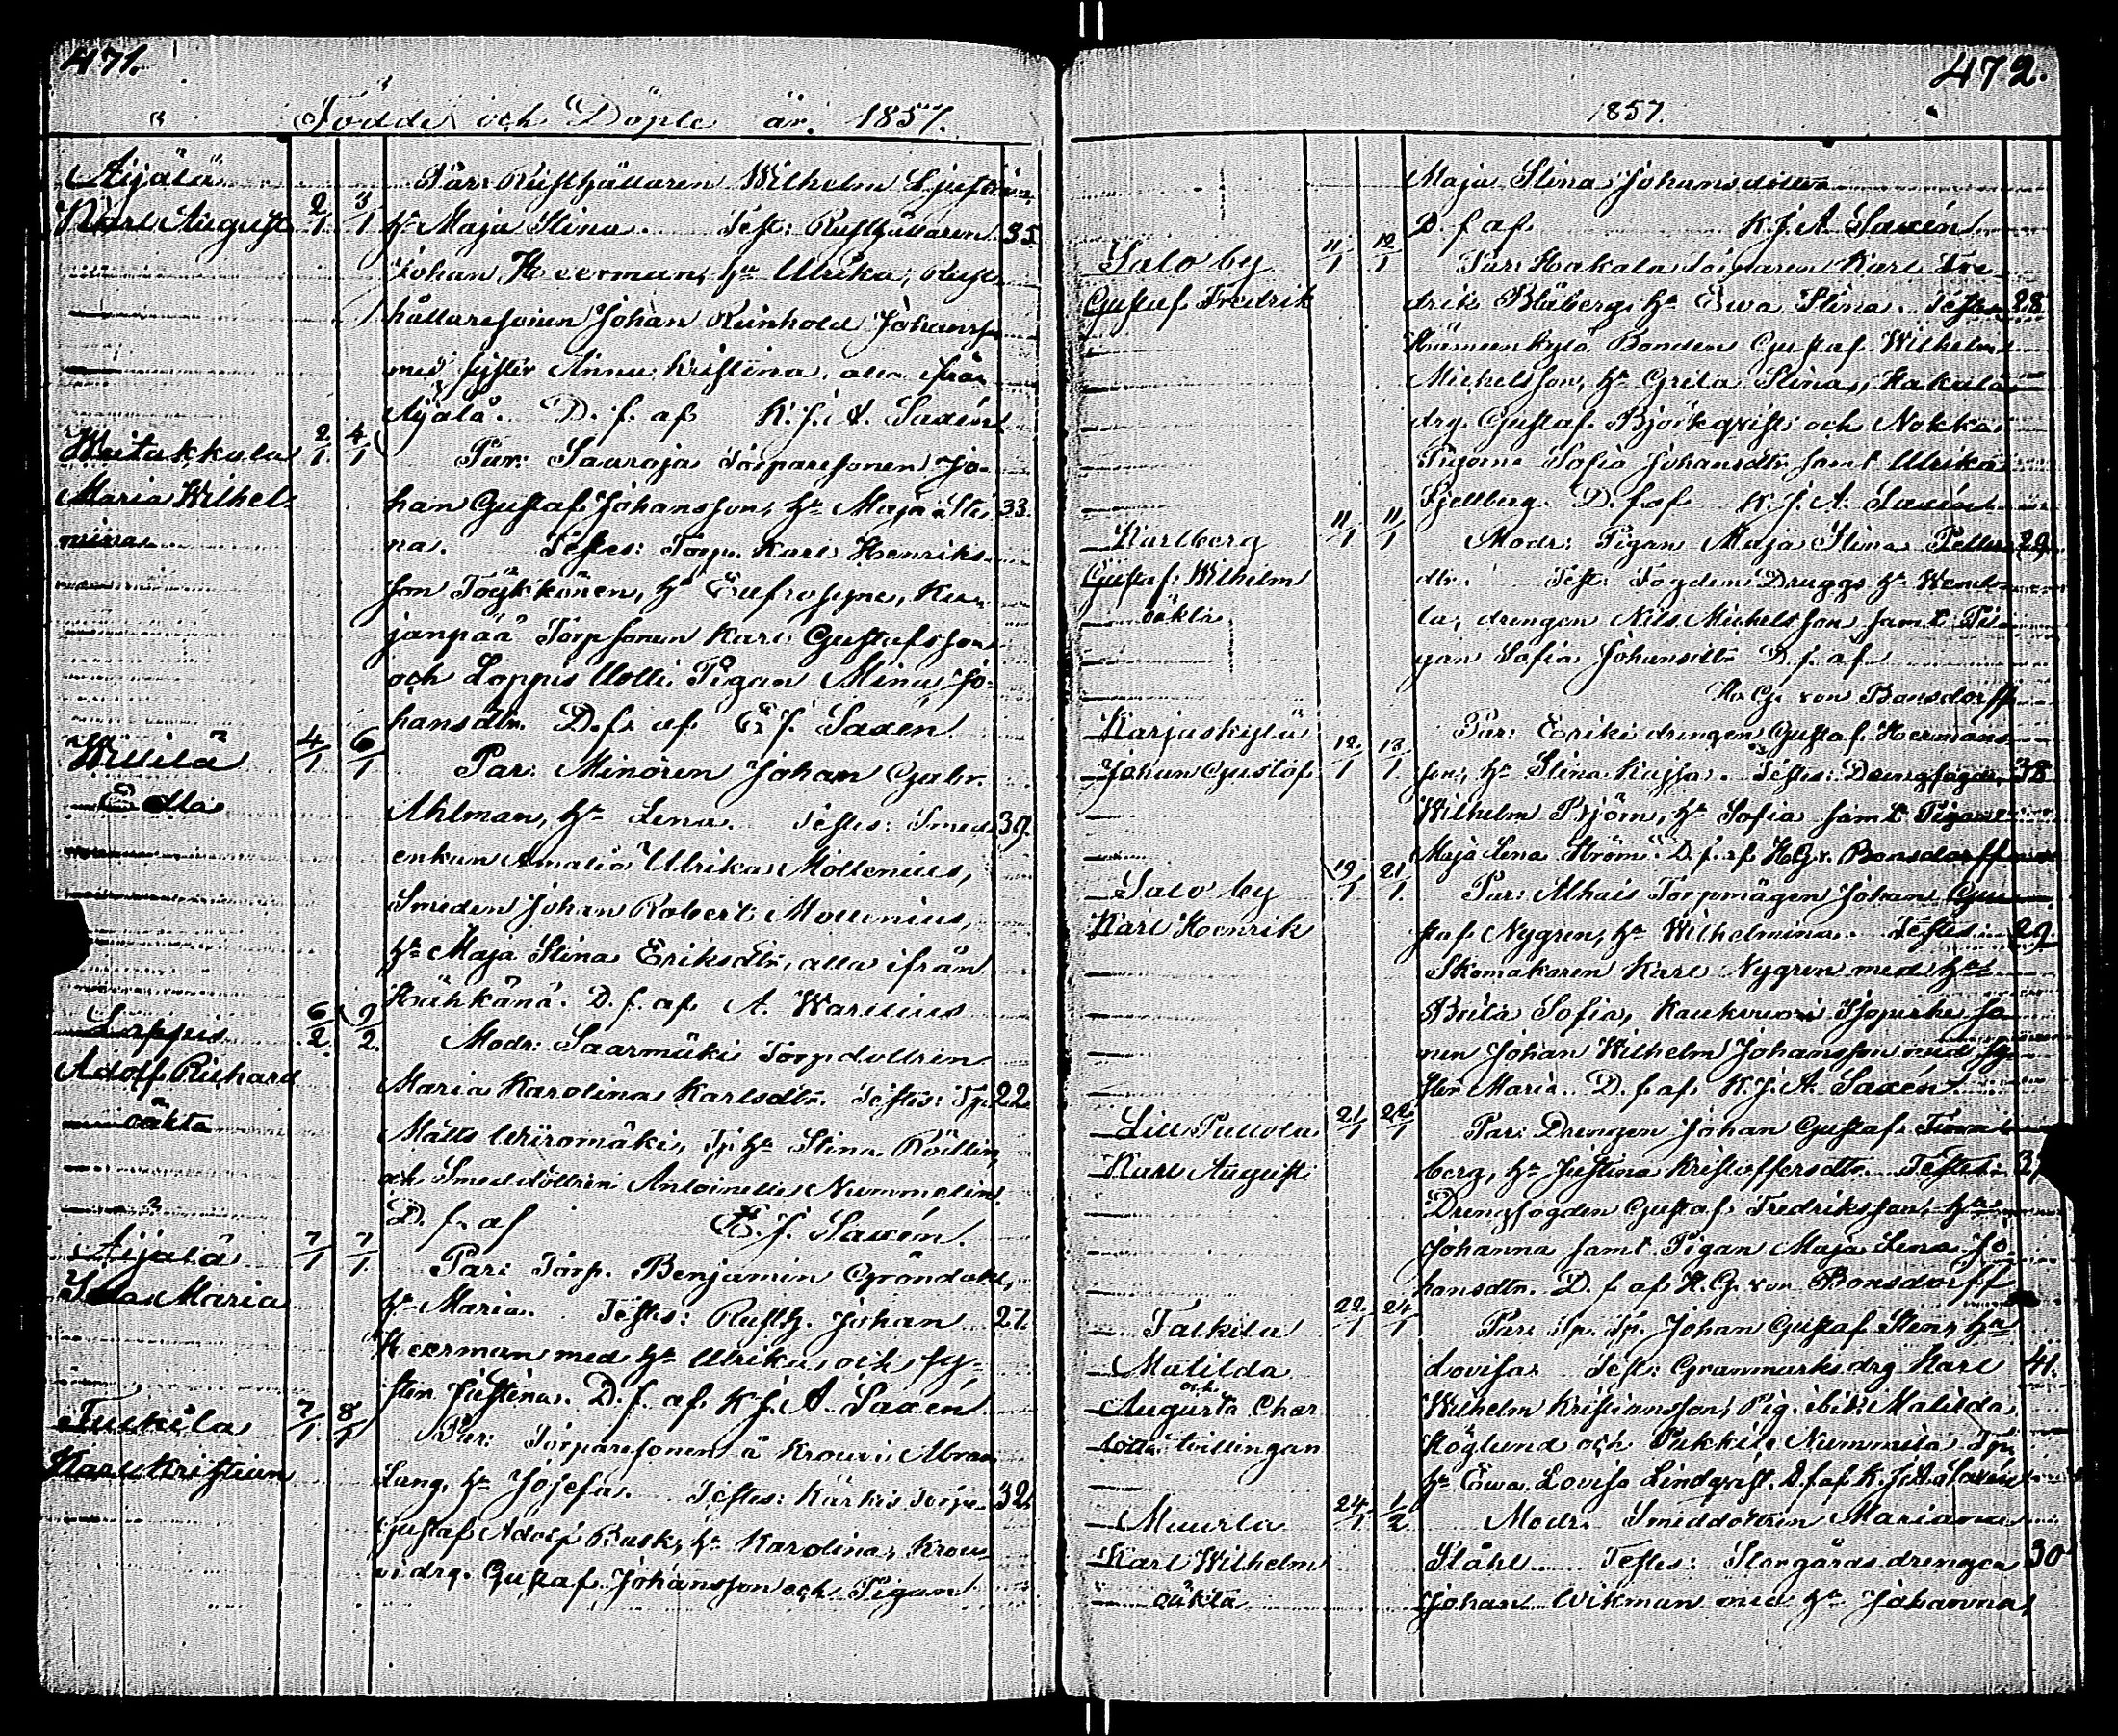 471.
Födde och Döpte år 1857.
Aijälä
Karl August 2/1 3/1
Par: Rusthållaren Wilhelm
hu Maja Stina. Test: Rusthållaren 35
Johan Heerman, hu Ulrika, Rust-
hållaresonen Johan Reinhold Johansson
med syster Anna Kristina, alla ifrån
Aijälä. D. f. af K. J. A. Saxén
Waitakkala 2/1 4/1
Maria Wilhel-
mina
Par: Sauroja Torparesonen Jo-
han Gustaf Johansson, hu Maja Sti- 33.
na. Testes: Torp. Karl Henriks-
son Töykkönen, hu Eufrosyne, Ku-
janpää Torpsonen Karl Gustafsson
och Loppis Uotti Pigan Mina Jo-
hansdtr. D. f. af E. J. Saxén.
Willilä 4/1 6/1
Edla
Par: Minören Johan Gabr.
Ahlman, hu Lena. Testes: Smeds 39.
enkan Amalia Ulrika Mollenius,
Smeden Johan Robert Mollenius,
hu Maja Stina Eriksdtr, alla ifrån
Hähkänä. D. f. af A. Warelius
Loppis 6/2 9/2
Adolf Richard
oäkta
Modr: Saarmäki Torpdottren
Maria Karolina Karlsdtr. Testes: Tp. 22
Matts Wuromäki, Tp. hu Stina Rödlin,
och Smeddöttren Antoinette Nummelin
D. f. af E. J. Saxén.
Aijälä 7/1 7/1
Ida Maria
Par: Torp. Benjamin Gröndahl,
hu Maria. Testes: Rusth. Johan 27.
Heerman med hu Ulrika och sy-
stern Justina. D. f. af K. J. A. Saxén
Tuckila 7/1 8/1
Karl Kristian
Par: Torparesonen å Krouvi Abram
Lang, hu Josefa. Testes: Kärkis Torp. 32.
Gustaf Adolf Rask, hu Karolina, Krou-
vi drg. Gustaf Johansson och Pigan
472.
1857.
Maja Stina Johansdotter
D. f. af K. J. A. Saxén
Salo by 11/1 12/1
Gustaf Fredrik
Par: Hakala Torparen Karl Fre-
drik Blåberg, hu Ewa Stina. Testes 28
Hämeenkylä Bonden Gustaf Wilhelm
Michelsson, hu Greta Stina, Hakala
drg. Gustaf Björkqvist och Nokka
Pigorna Sofia Johansdtr samt Ulrika
Fjellberg. D. f. af K. J. A. Saxén
Karlberg 11/1 11/1
Gustaf Wilhelm
oäkta
Modr: Pigan Maja Stina Petters 29
dtr. Test: Fogden Druggs hu Wendla
la, drengen Nils Michelsson samt Pi-
gan Sofia Johansdtr D. f. af
H. G. von Bonsdorff
Karjaskylä 12/1 13/1
Johan Gustaf
Par: Eriki drengen Gustaf Hermans-
son, hu Stina Kajsa. Testes: Drengfogden 38
Wilhelm Björn, hu Sofia samt Pigan
Maja Lena Ström. D. f. af H. G. v. Bonsdorff
Salo by 19/1 21/1
Karl Henrik
Par: Alhais Torpmågen Johan Gus-
staf Nygren, hu Wilhelmina. Testes: 29
Skomakaren Karl Nygren med hu
Brita Sofia, Kaukvuori so-
nen Johan Wilhelm Johansson med sy-
ster Maria. D. f. af K. J. A. Saxén
Lill Pullola 21/1 22/1
Karl August
Par: Drengen Johan Gustaf
berg, hu Justina Kristoffersdtr. Testes:
Drengfogden Gustaf Fredriksson, hu
Johanna samt Pigan Maja Lena Jo-
hansdtr. D. f. af H. G. von Bonsdorff
Talkila 22/1 24/1
Matilda
och
Augusta Char-
lotta tvillingar
Par: Tp. Johan Gustaf Sten, hu
Lovisa. Test: Granmarks drg Karl 41.
Wilhelm Kristiansson, Pig. ibid: Matilda
Höglund och Pukkila Nummila Tp.
hu Ewa Lovisa Lindqvist. D. f. af K. J. A. Saxén
Muurla 24/1 1/2
Karl Wilhelm
oäkta
Modr. Smeddottren Mariana
Ståhl. Testes: Storgårds drengen 30
Johan Wikman med hu Johanna,